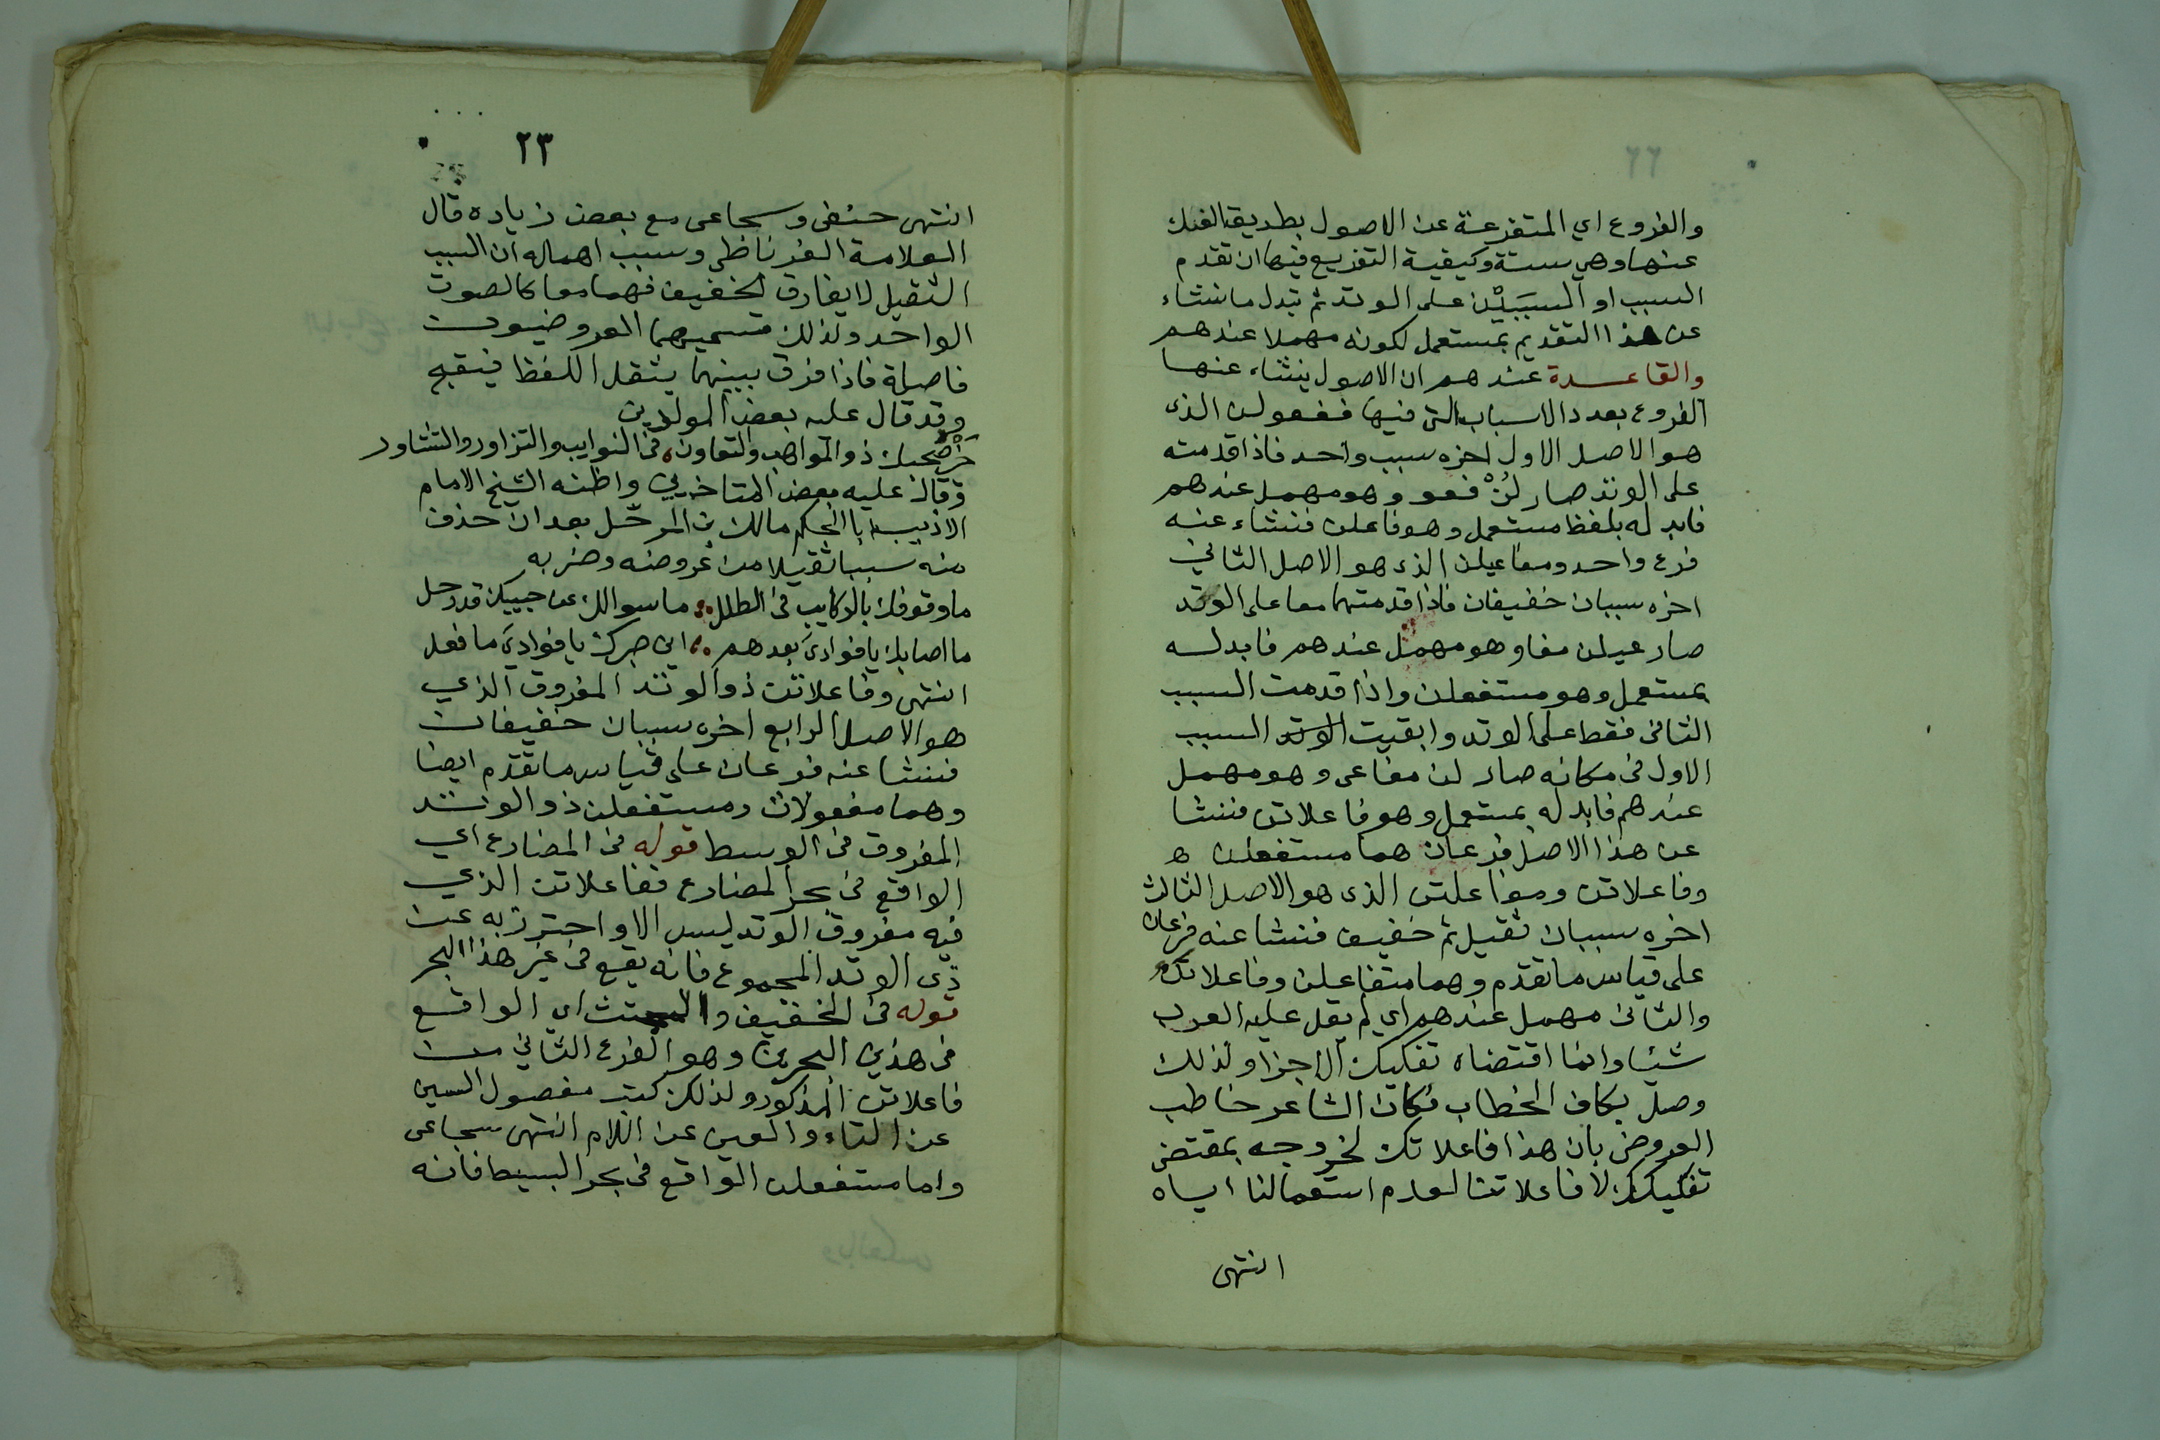 والفروع اي المتفرعة عن الاصول بطريق الفك
عنها وهي ستة وكيفية التفريع فيها ان تقدم
السبب او السببَيْن على الوتد ثم تبدل ما نشاء
عن هذا التقديم بمستعمل لكونه مهملا عندهم
والقاعدة عندهم ان الاصول ينشاء عنها
الفروع بعدد الاسباب التي فيها ففعولن الذى
هو الاصل الاول اخره سبب واحد فاذا قدمته
على الوتد صار لُنْ فعو وهو مهمل عندهم
فابدله بلفظ مستعمل وهو فاعلن فنشاء عنه
فرع واحد ومفاعيلن الذى هو الاصل الثاني
اخره سببان خفيفان فاذا قدمتهما معا على الوتد
صار عيلن مفا وهو مهمل عندهم فابدله
بمستعمل وهو مستفعلن واذا قدمت السبب
الثانى فقط على الوتد وابقيت الوتد السبب
الاول فى مكانه صار لن مفاعى وهو مهمل
عندهم فابدله بمستعمل وهو فاعلاتن فنشا
عن هذا الاصل فرعان هما مستفعلن ه
وفاعلاتن ومفاعلتن الذى هو الاصل الثالث
اخره سببان ثقيل ثم خفيف فنشا عنه فرعان
على قياس ما تقدم وهما متفاعلن وفاعلاتك
والثانى مهمل عندهم اي لم يقل عليه العرب
شئيا وانما اقتضاه تفكيك الاجزا ولذلك
وصل بكاف الخطاب فكان الشاعر خاطب
العروضى بان هذا فاعلاتك لخروجه بمقتضى
تفكيكك لا فاعلاتنا لعدم استعمالنا اياه
انتهى
٢٣
انتهى حنفى وسجاعى مع بعض زياده قال
العلامة الغرناطى وسبب اهماله ان السبب
الثقيل لا يفارق الخفيف فهما معا كالصوت
الواحد ولذلك تسميهما العروضيون
فاصلة فاذا فرق بينهما يثقل اللفظ فيقبح
وقد قال عليه بعض المولدين
صحبك ذو المواهب والتعاون فى النوايب والتزاور والتشاور
وقال عليه بعض المتاخرين واظنه الشيخ الامام
الاديب ابا الحكم مالك بن المرحّل بعد ان حذف
منه سببا ثقيلا من عروضه وضربه
ما وقوفك بالركايب فى الطلل ما سوالك عن حبيبك قد رحل
ما اصابك يا فوادى بعدهم اين صبرك يا فوادي ما فعل
انتهى وفاعلاتن ذو الوتد المفروق الذي
هو الاصل الرابع اخره سببان خفيفان
فنشا عنه فرعان على قياس ما تقدم ايضا
وهما مفعولات ومستفعلن ذو الوتد
المفروق فى الوسط قوله فى المضارع اي
الواقع فى بحر المضارع ففاعلاتن الذي
فيه مفروق الوتد ليس الا واحترز به عن
ذى الوتد المجموع فانه يقع فى غير هذا البحر
قوله فى الخفيف والمجتث اي الواقع
فى هذين البحرين وهو الفرع الثاني من
فاعلاتن المذكور ولذلك كتب مفصول السين
عن التاء والعين عن اللام انتهى سجاعى
واما مستفعلن الواقع فى بحر البسيط فانه